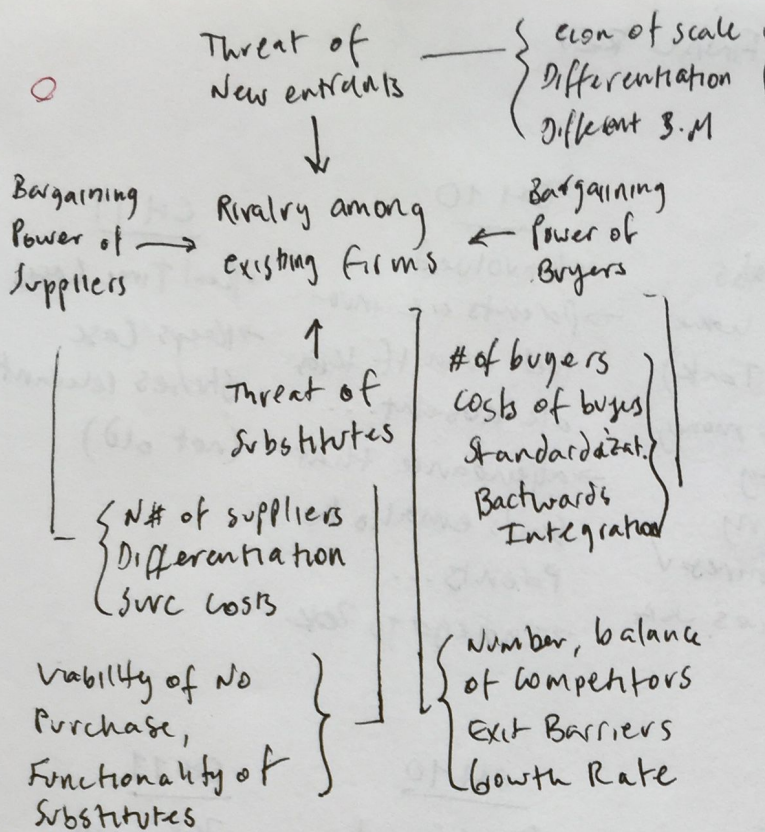 Threat of
New entrants
econ of scale
Differentiation
Different B.M
Bargaining
Power of
Suppliers
Rivalry among
existing firms
Bargaining
Power of
Buyers
Threat of
Substitutes
# of buyers
Costs of buyes
Standardizat.
Backwards
Integration
N# of suppliers
Differentiation
costs
Viability of No
Purchase,
Functionality of
Substitutes
Number, balance
of competitors
Exit Barriers
Growth Rate